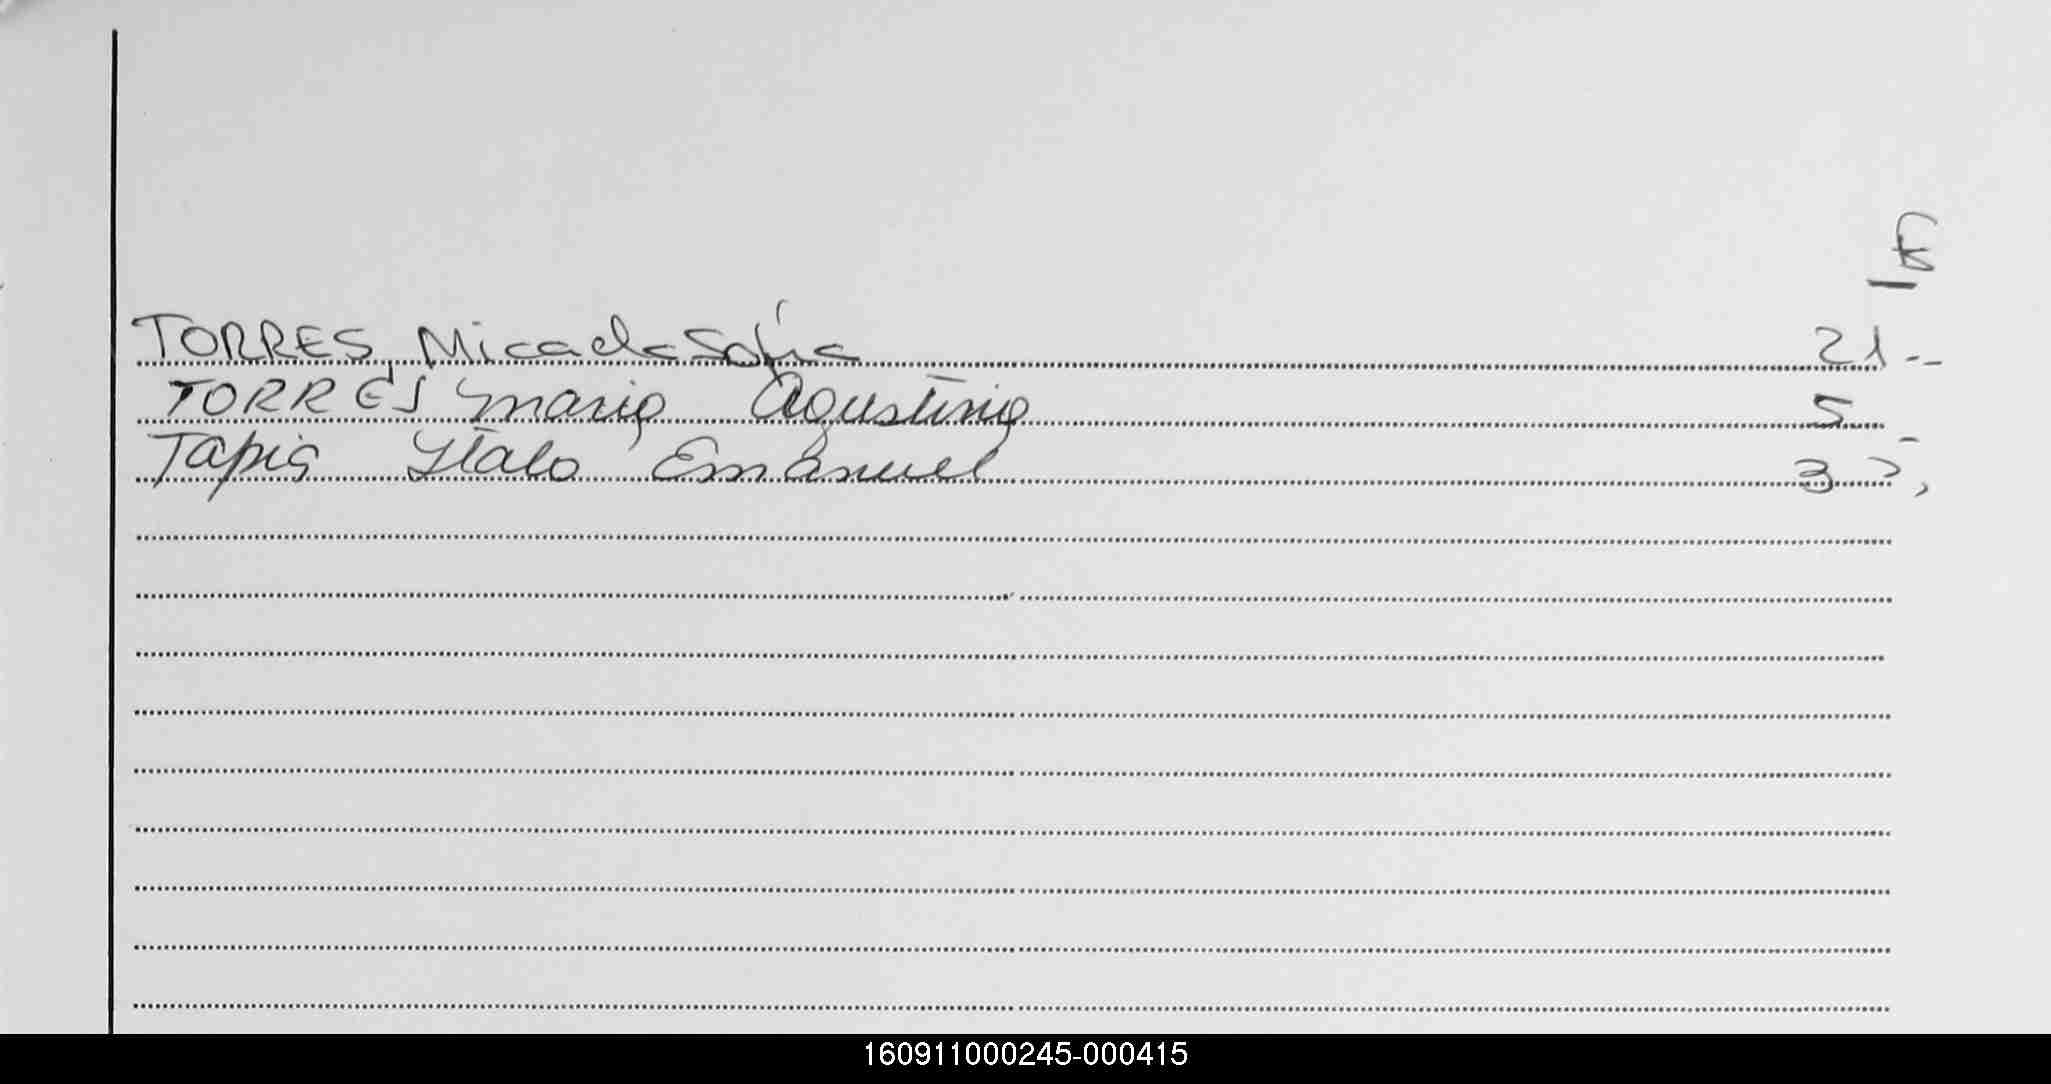 TORRES Micaela Sofía 21 --
TORRES Maria Agustina 5
Tapia Italo Emanuel 3
160911000245-000415